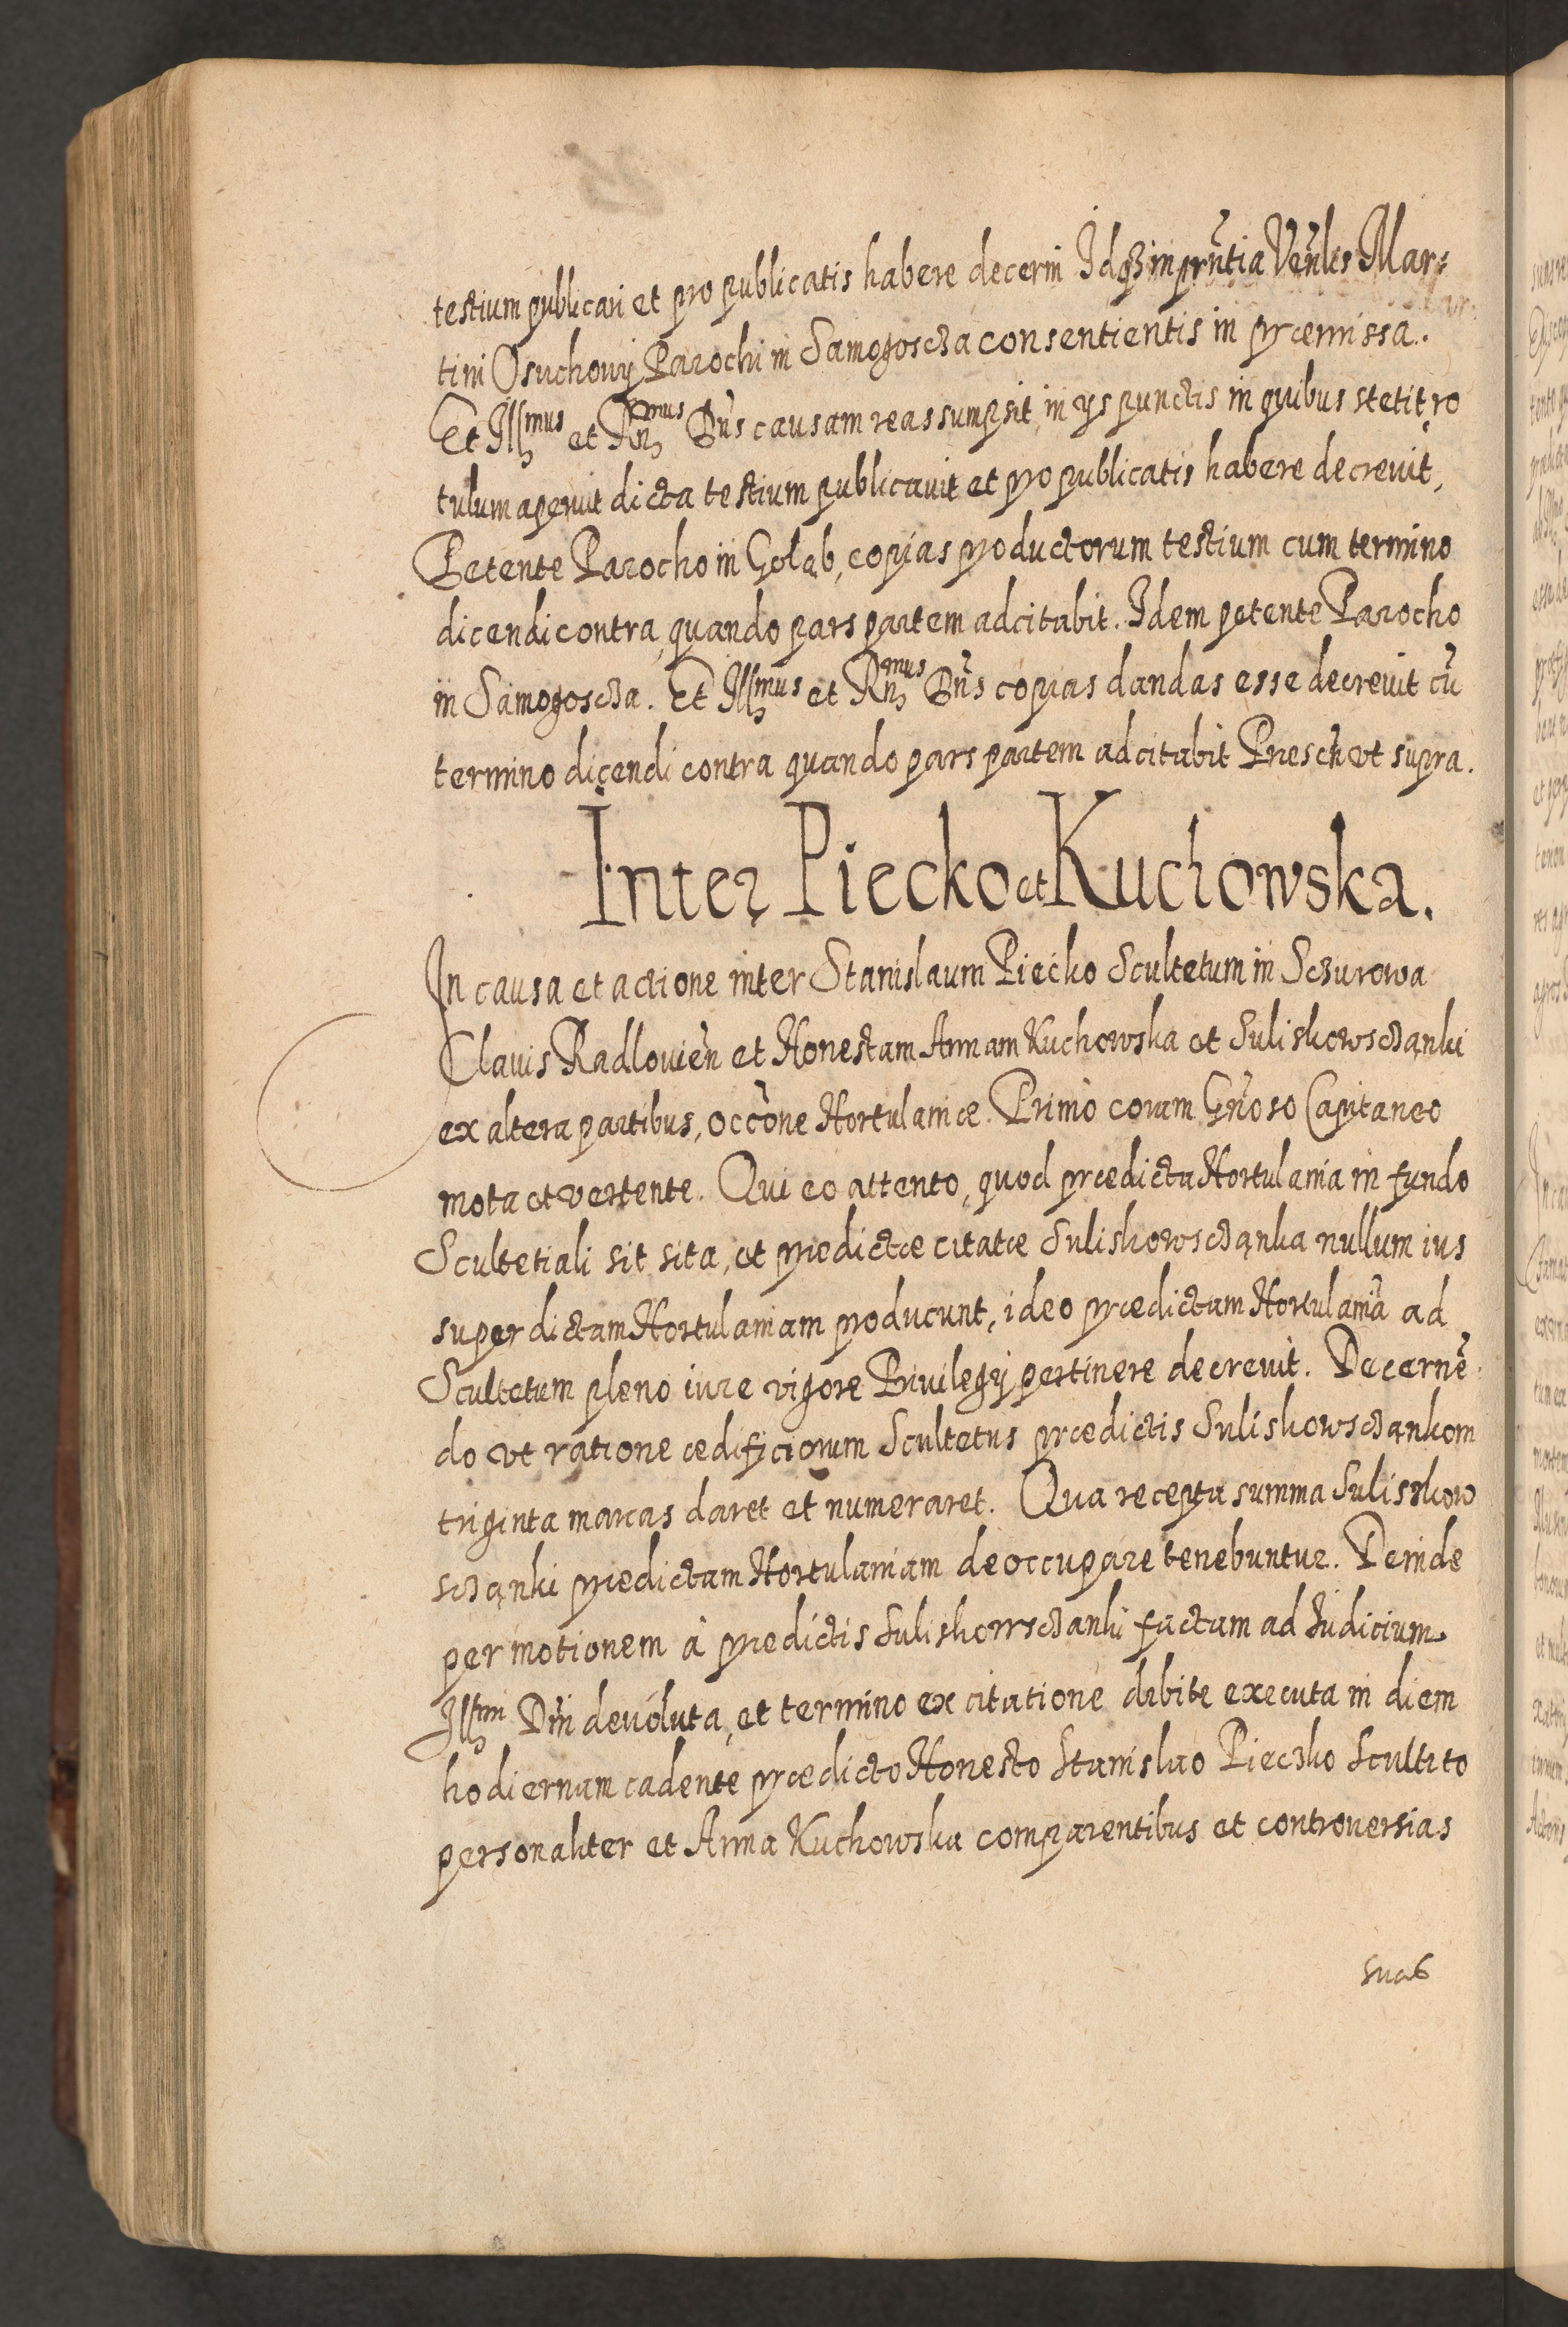 testium publicari et pro publicatis habere decerni Idq3 in prñtia Veñlis Mar:
tini Osuchowij Parochi in Samogoscza consentientis in præmissa.
Et Illmus et Rñmus Dñs causam reassumpsit in ys punctis in quibus stetit, ro
tulum aperuit dicta testium publicauit et pro publicatis habere decreuit,
Petente Parocho in Gołąb, copias productorum testium cum termino
dicendi contra, quando pars partem adcitabit. Idem petente Parocho
in Samogoscza. Et Illmus et Rñmus Dñs copias dandas esse decreuit cũ
termino dicendi contra quando pars partem adcitabit vt supra.
Inter Piecko et Kuchowska.
In causa et actione inter Stanislaum Piecko Scultetum in Sczurowa
Clauis Radlouień et Honestam Annam Kuchowska et Suliskowsczanki
ex altera partibus, occõne Hortulaniæ. Primò coram Gñoso Capitaneo
mota et vertente. Qui eo attento, quod prædicta Hortulania in fundo
Scultetiali sit sita, et prædictæ citatæ Suliskowsczanka nullum ius
super dictam Hortulaniam producunt, ideo prædictam Hortulaniã ad
Scultetum pleno iure vigore Priuilegij pertinere decreuit. Decernẽ
do vt ratione ædificiorum Scultetus prædictis Suliskowsczankom
triginta marcas daret et numeraret. Qua recepta summa Suliskow
sczanki prædictam Hortulaniam deoccupare tenebuntur. Deinde
per motionem à prædictis Suliskowsczanki factam ad Iudicium
Illmi Dñi deuoluta, et termino ex citatione debite executa in diem
hodiernum cadente prædicto Honesto Stanislao Pieczko Sculteto
personaliter et Anna Kuchowska comparentibus et controuersias
suas